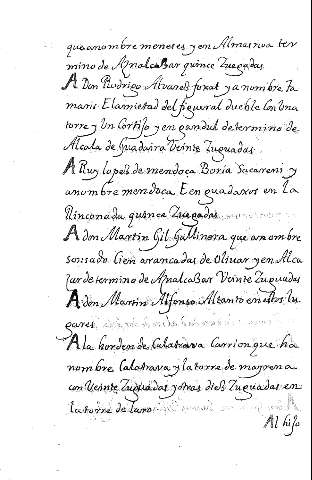 que a nombre meneses y en Almasnoa ter
mino de Aznalcaβar quince Zugadas
A Don Rodrigo Alvares forat y a nombre Ta
maris El amietad del figueral dueble con Una
torre y Un Cortijo y en gandul de termino de
Alcala de Guadaira Veinte Zuguadas
A Ruy lopes de mendoca Boria Sacareni y
a nombre mendoca E en guadaxos en la
Rinconada quinca Zugadas
A don Martin Gil Gallinera que a nombre
sonsado Cien arancadas de Olivar y en Alca
sar de termino de Aznalcaβar Veinte Zuguadas
A don Martin Alfonso Altanto en estos lu
gares
A la horden de Calatrava Carrion que ha
nombre Calatrava y la torre de mayrena
con Veinte Zuguadas y otras dies Zuguadas en
la torre de laro
Al hijo